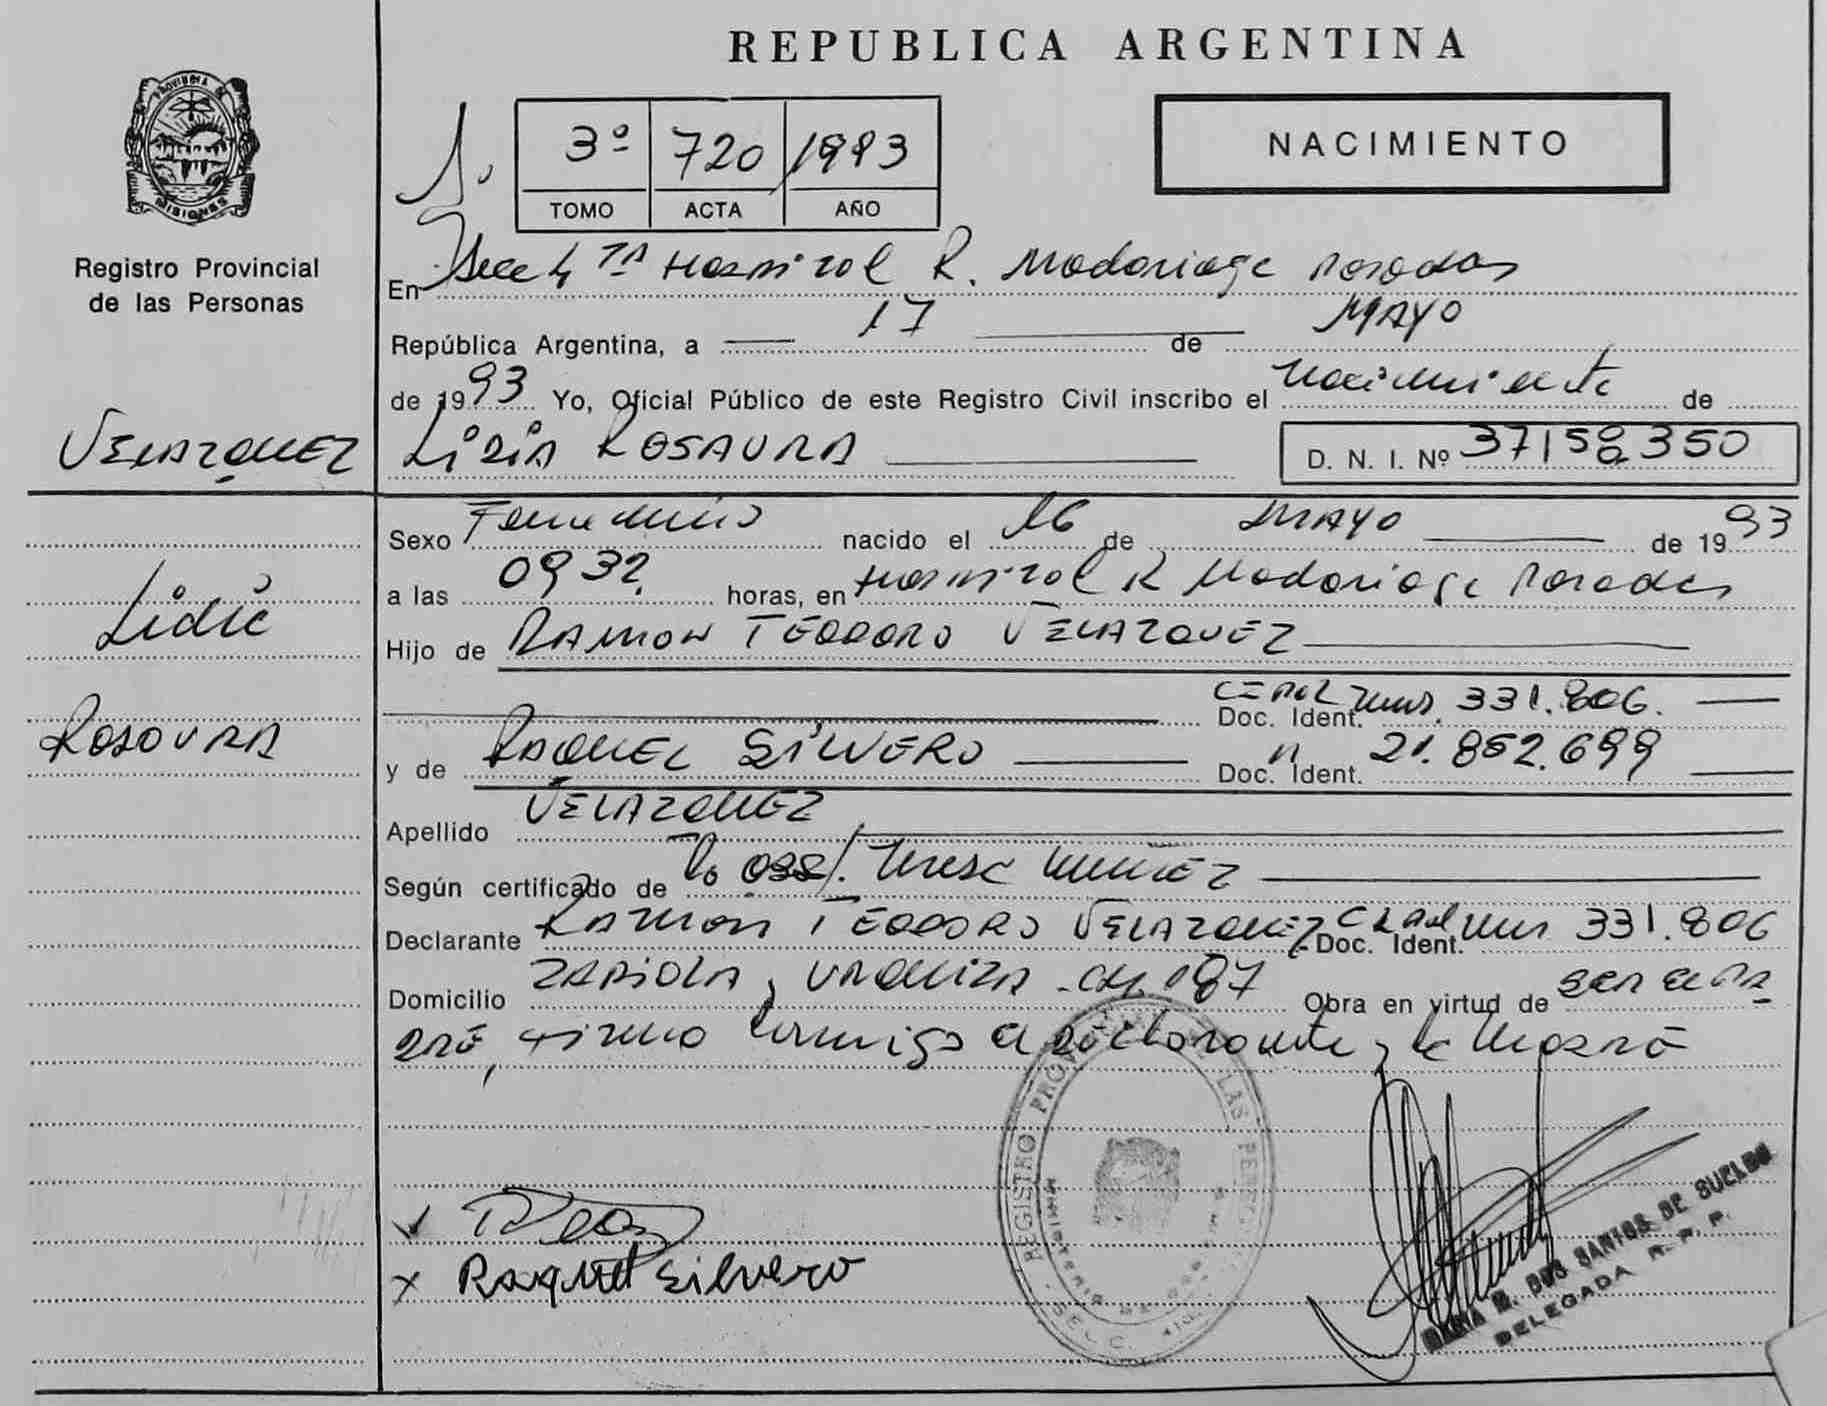 REPUBLICA ARGENTINA
PROVINCIA DE
MISIONES
Registro Provincial
de las Personas
3º 720 1993
TOMO ACTA AÑO
NACIMIENTO
En Secc 4ta Hospital R. Madariaga Posadas
República Argentina, a 17 de MAYO
de 1993 Yo, Oficial Público de este Registro Civil inscribo el Nacimiento de
VELAZQUEZ
LIDIA ROSAURA
D. N. I. Nº 37158350
Lidia
Rosaura
Sexo Femenino nacido el 16 de MAYO de 1993
a las 0932 horas, en Hospital R Madariaga Posadas
Hijo de RAMON TEODORO VELAZQUEZ
Doc. Ident. 331.806.
y de RAQUEL SILVERO Doc. Ident. 21.852.699
Apellido VELAZQUEZ
Según certificado de
Declarante RAMON TEODORO VELAZQUEZ Doc. Ident. 331.806
Domicilio ZAPIOLA y URQUIZA 187 Obra en virtud de
firma conmigo el declarante y la Madre
Raquel Silvero
REGISTRO PROVINCIAL DE LAS PERSONAS
DOS SANTOS DE SUELDO
DELEGADA R. P. P.